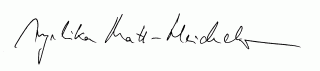 Angelika Matt-Heidecker